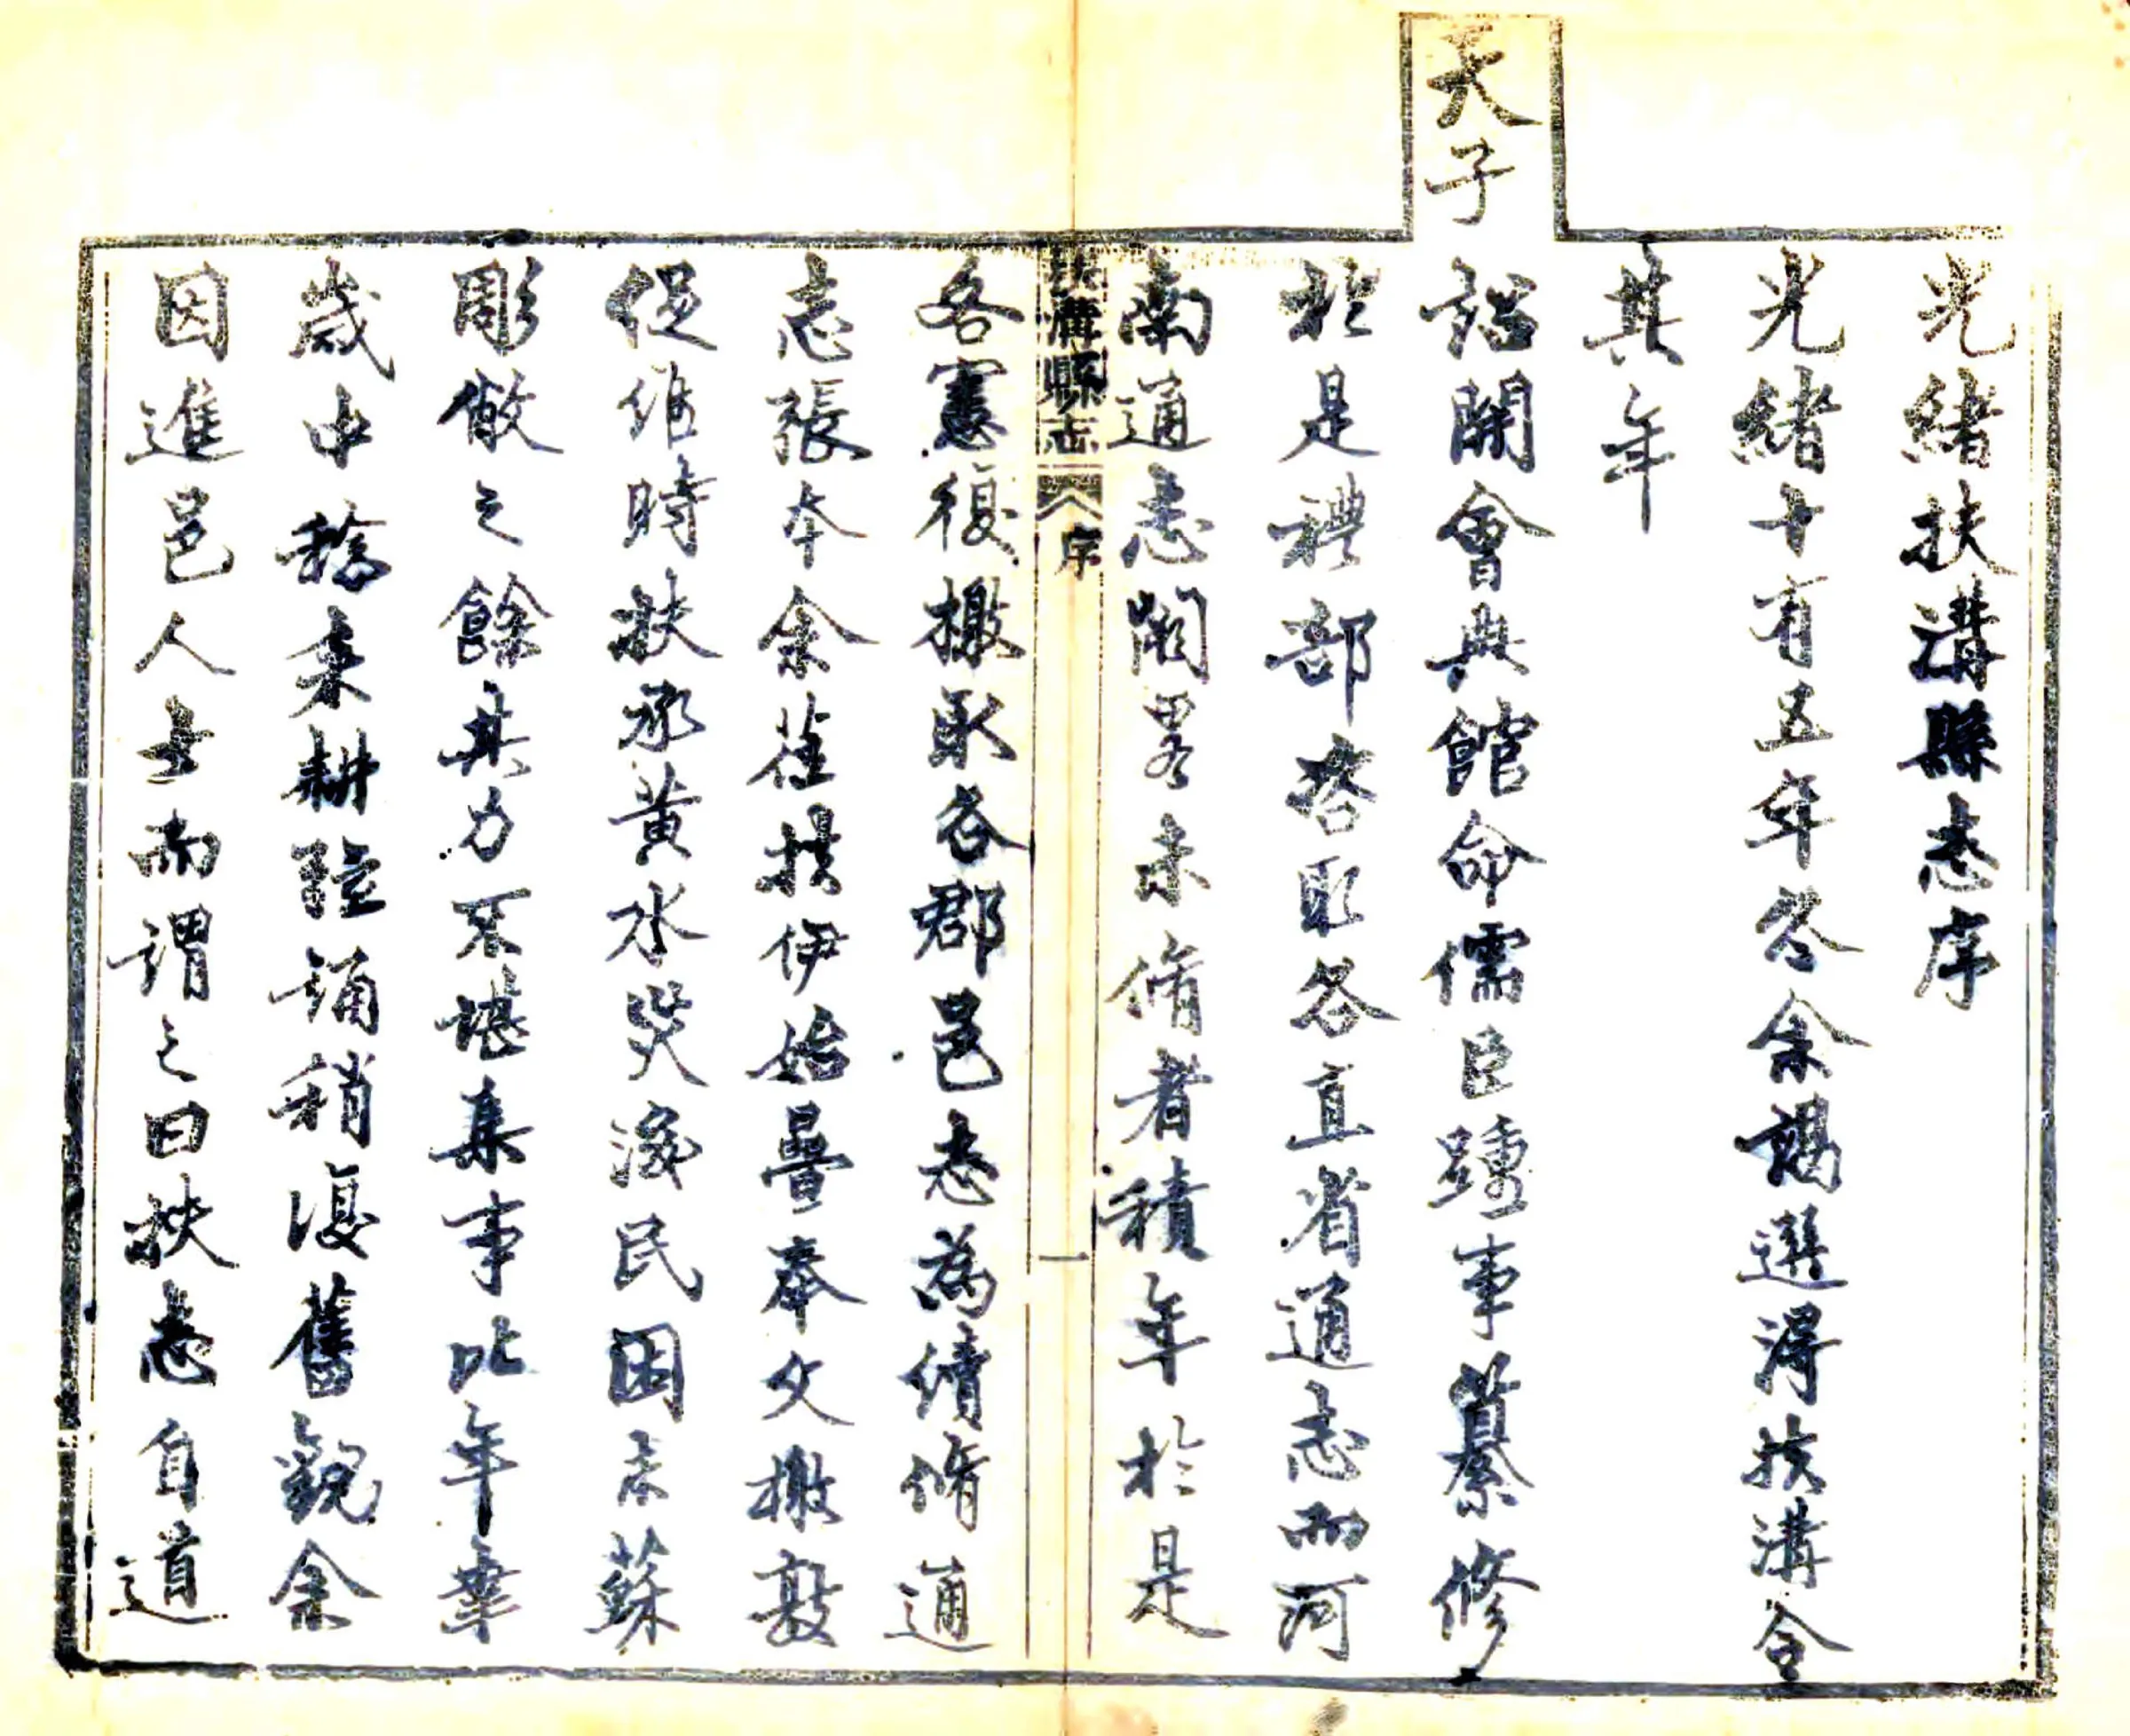 光緒扶溝縣志序
光緒十有五年冬余謁選得扶溝令
其年
天子
詔開會典館命儒臣踵事纂修
於是禮部咨取各直省通志而河
南通志闕畧未脩者積年於是
扶溝縣志 序 一
各憲復檄取各郡邑志為續脩通
志張本余蒞扶伊始疊奉文檄敦
促維時扶承黃水災後民困未蘇
彫敝之餘其力不堪集事比年業
歲中稔耒耕陸誦稍復舊觀余
因進邑人士而謂之曰扶志自道